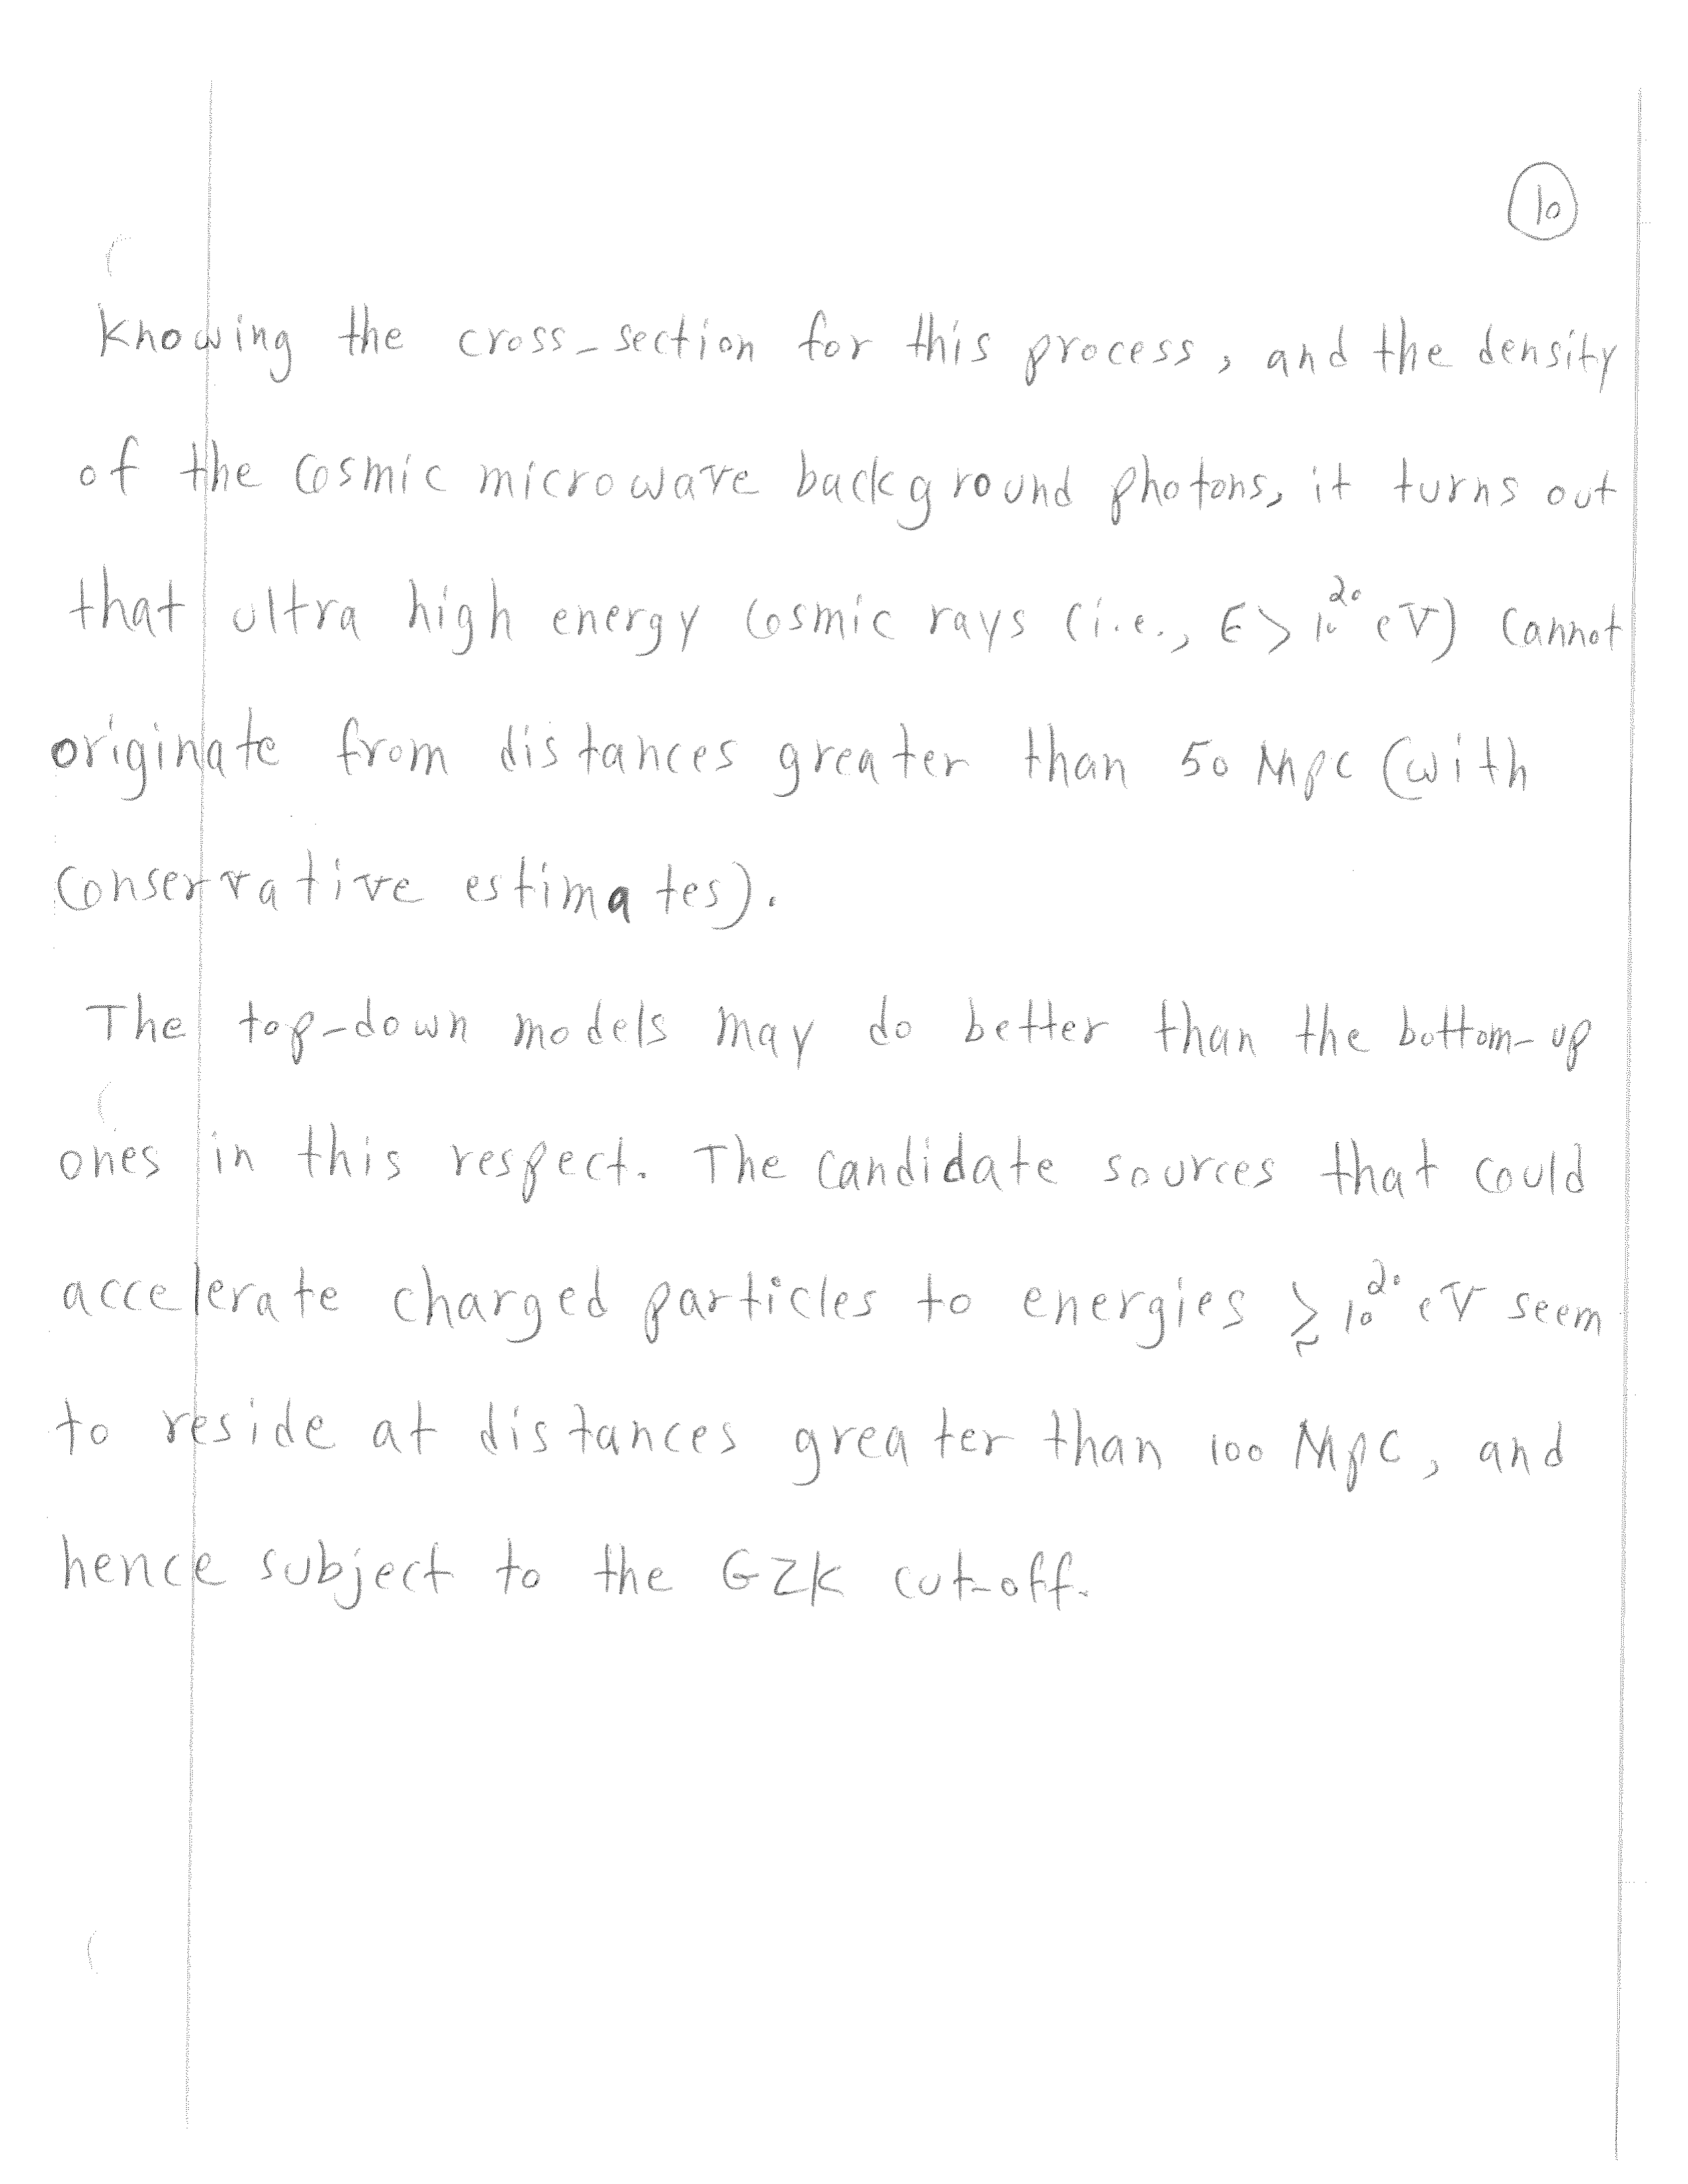 10
Knowing the cross-section for this process, and the density
of the cosmic microwave background photons, it turns out
that ultra high energy cosmic rays (i.e., E > 10²⁰ eV) cannot
originate from distances greater than 50 Mpc (with
conservative estimates).
The top-down models may do better than the bottom-up
ones in this respect. The candidate sources that could
accelerate charged particles to energies ≳ 10²⁰ eV seem
to reside at distances greater than 100 Mpc, and
hence subject to the GZK cut-off.